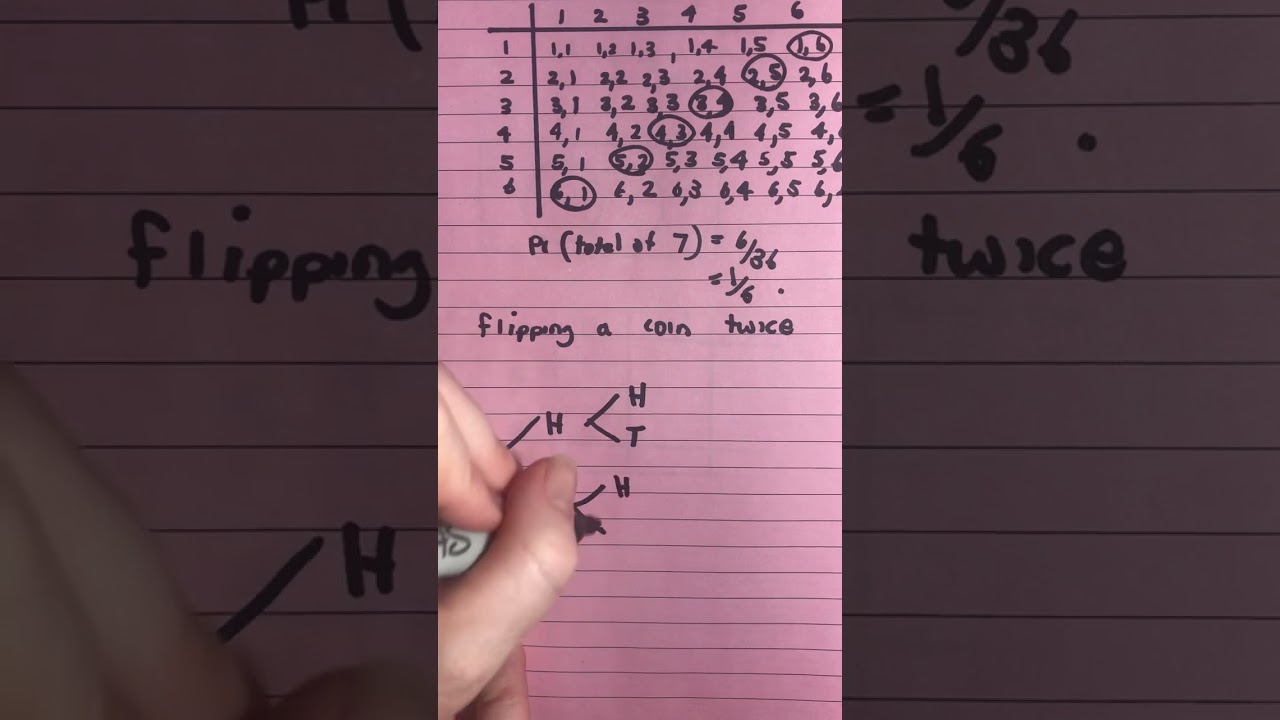 1 2 3 4 5 6
1 1,1 1,2 1,3 1,4 1,5 1,6
2 2,1 2,2 2,3 2,4 2,5 2,6
3 3,1 3,2 3,3 3,4 3,5 3,6
4 4,1 4,2 4,3 4,4 4,5 4,
5 5,1 5,2 5,3 5,4 5,5 5,6
6 6,1 6,2 6,3 6,4 6,5 6,
Pr (total of 7) = 6/36
= 1/6.
flipping a coin twice
H
H
T
H
/36
= 1/6.
flipping
twice
H